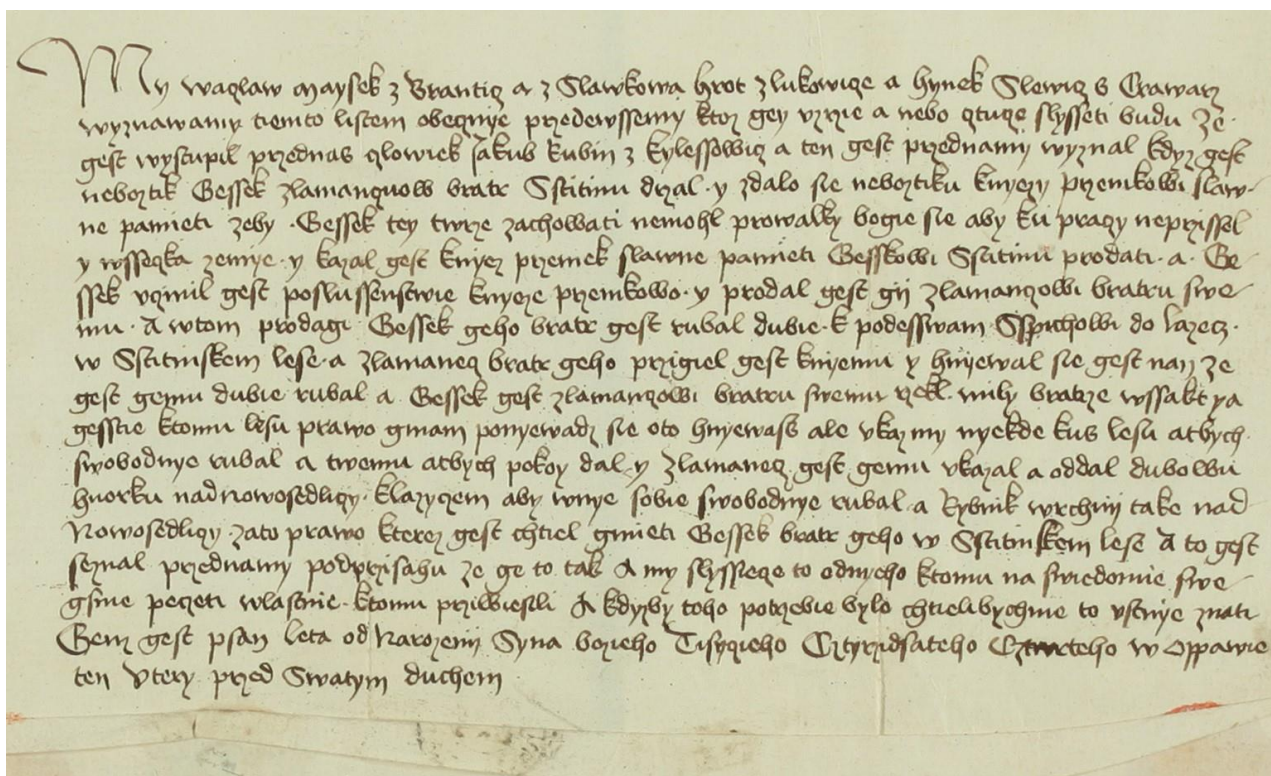 My waczlaw maysek z Branticz a z Slawkowa hrot z lukowicze a hynek Slewicz s Crawarz
wyznawamy tiemto listem obecznye przedewssemy ktoz gey vzrzie a nebo cztucze slysseti budu Ze
gest wystupil przednas czlowiek Jakub Rubin z kylessowicz a ten gest przednamy wyznal kdyz gest
neboztik Gessek zlamanczuow bratr Sstitinu drzal y zdalo sie neboztiku knyezy przemkowi slaw-
ne pamieti zeby Gessek tey twrze zachowati nemohl prowalky bogie sie aby ku praczy neprzissel
y wsseczka zemye y kazal gest knyez przemek slawne pamieti Gesskowi Sstitinu prodati a Ge-
ssek vczinil gest poslussenstwie knyeze przemkowo y prodal gest gij zlamanczowi bratru swe-
mu A wtom prodagi Gessek geho bratr gest rubal dubie k podesswam Sspichowi do lazecz
w Sstitinskem lese a zlamanecz bratr geho przigiel gest knyemu y hnyewal sie gest nan ze
gest gemu dubie rubal a Gessek gest zlamanczowi bratru swemu rzekl mily bratrze wssakt ya
gesstie ktomu lesu prawo gmam ponyewadz sie oto hnyewass ale vkaz my nyekde kus lesu atbych
swobodnye rubal a twemu atbych pokoy dal y zlamanecz gest gemu vkazal a oddal dubowu
huorku nadnowosedliczy klazyczem aby wnye sobie swobodnye rubal a Rybnik wrchnij take nad
Nowosedliczy zato prawo kterez gest chtiel gmieti Gessek bratr geho w Sstitinskem lese A to gest
seznal przednamy podprzisahu ze ge to tak A my slyssiecze to odnyeho ktomu na swiedomie swe
gsme peczeti wlastnie ktomu prziwiesili A kdyzby toho potrzebie bylo chtielibychme to vstnye znati
Genz gest psan leta od Narozeny Syna bozieho Tisyczieho Cztyrzidsateho Cztwrteho w Oppawie
ten Vtery przed Swatym duchem